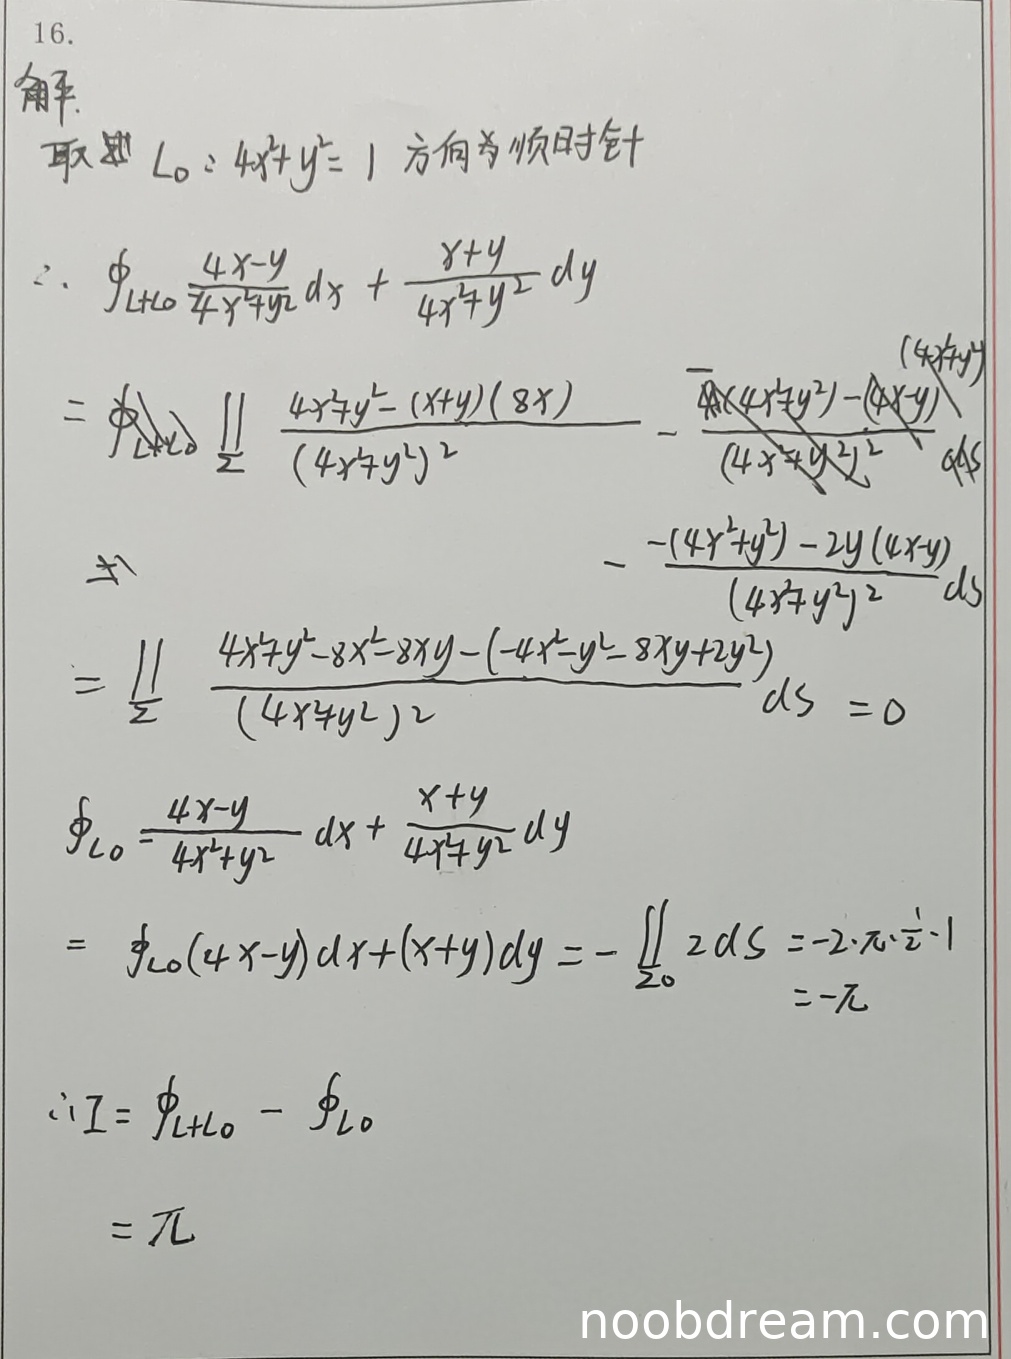 16.
解.
取 L₀: 4x²+y²=1 方向为顺时针
∴ ∮_{L+L₀} \frac{4x-y}{4x²+y²} dx + \frac{x+y}{4x²+y²} dy
= ∬_Σ \frac{4x²+y²-(x+y)(8x)}{(4x²+y²)²} -
- \frac{-(4x²+y²)-2y(4x-y)}{(4x²+y²)²} ds
= ∬_Σ \frac{4x²+y²-8x²-8xy-(-4x²-y²-8xy+2y²)}{(4x²+y²)²} ds = 0
∮_{L₀} = \frac{4x-y}{4x²+y²} dx + \frac{x+y}{4x²+y²} dy
= ∮_{L₀} (4x-y)dx+(x+y)dy = -∬_{Σ₀} 2ds = -2·π·\frac{1}{2}·1
= -π
∴ I = ∮_{L+L₀} - ∮_{L₀}
= π
noobdream.com